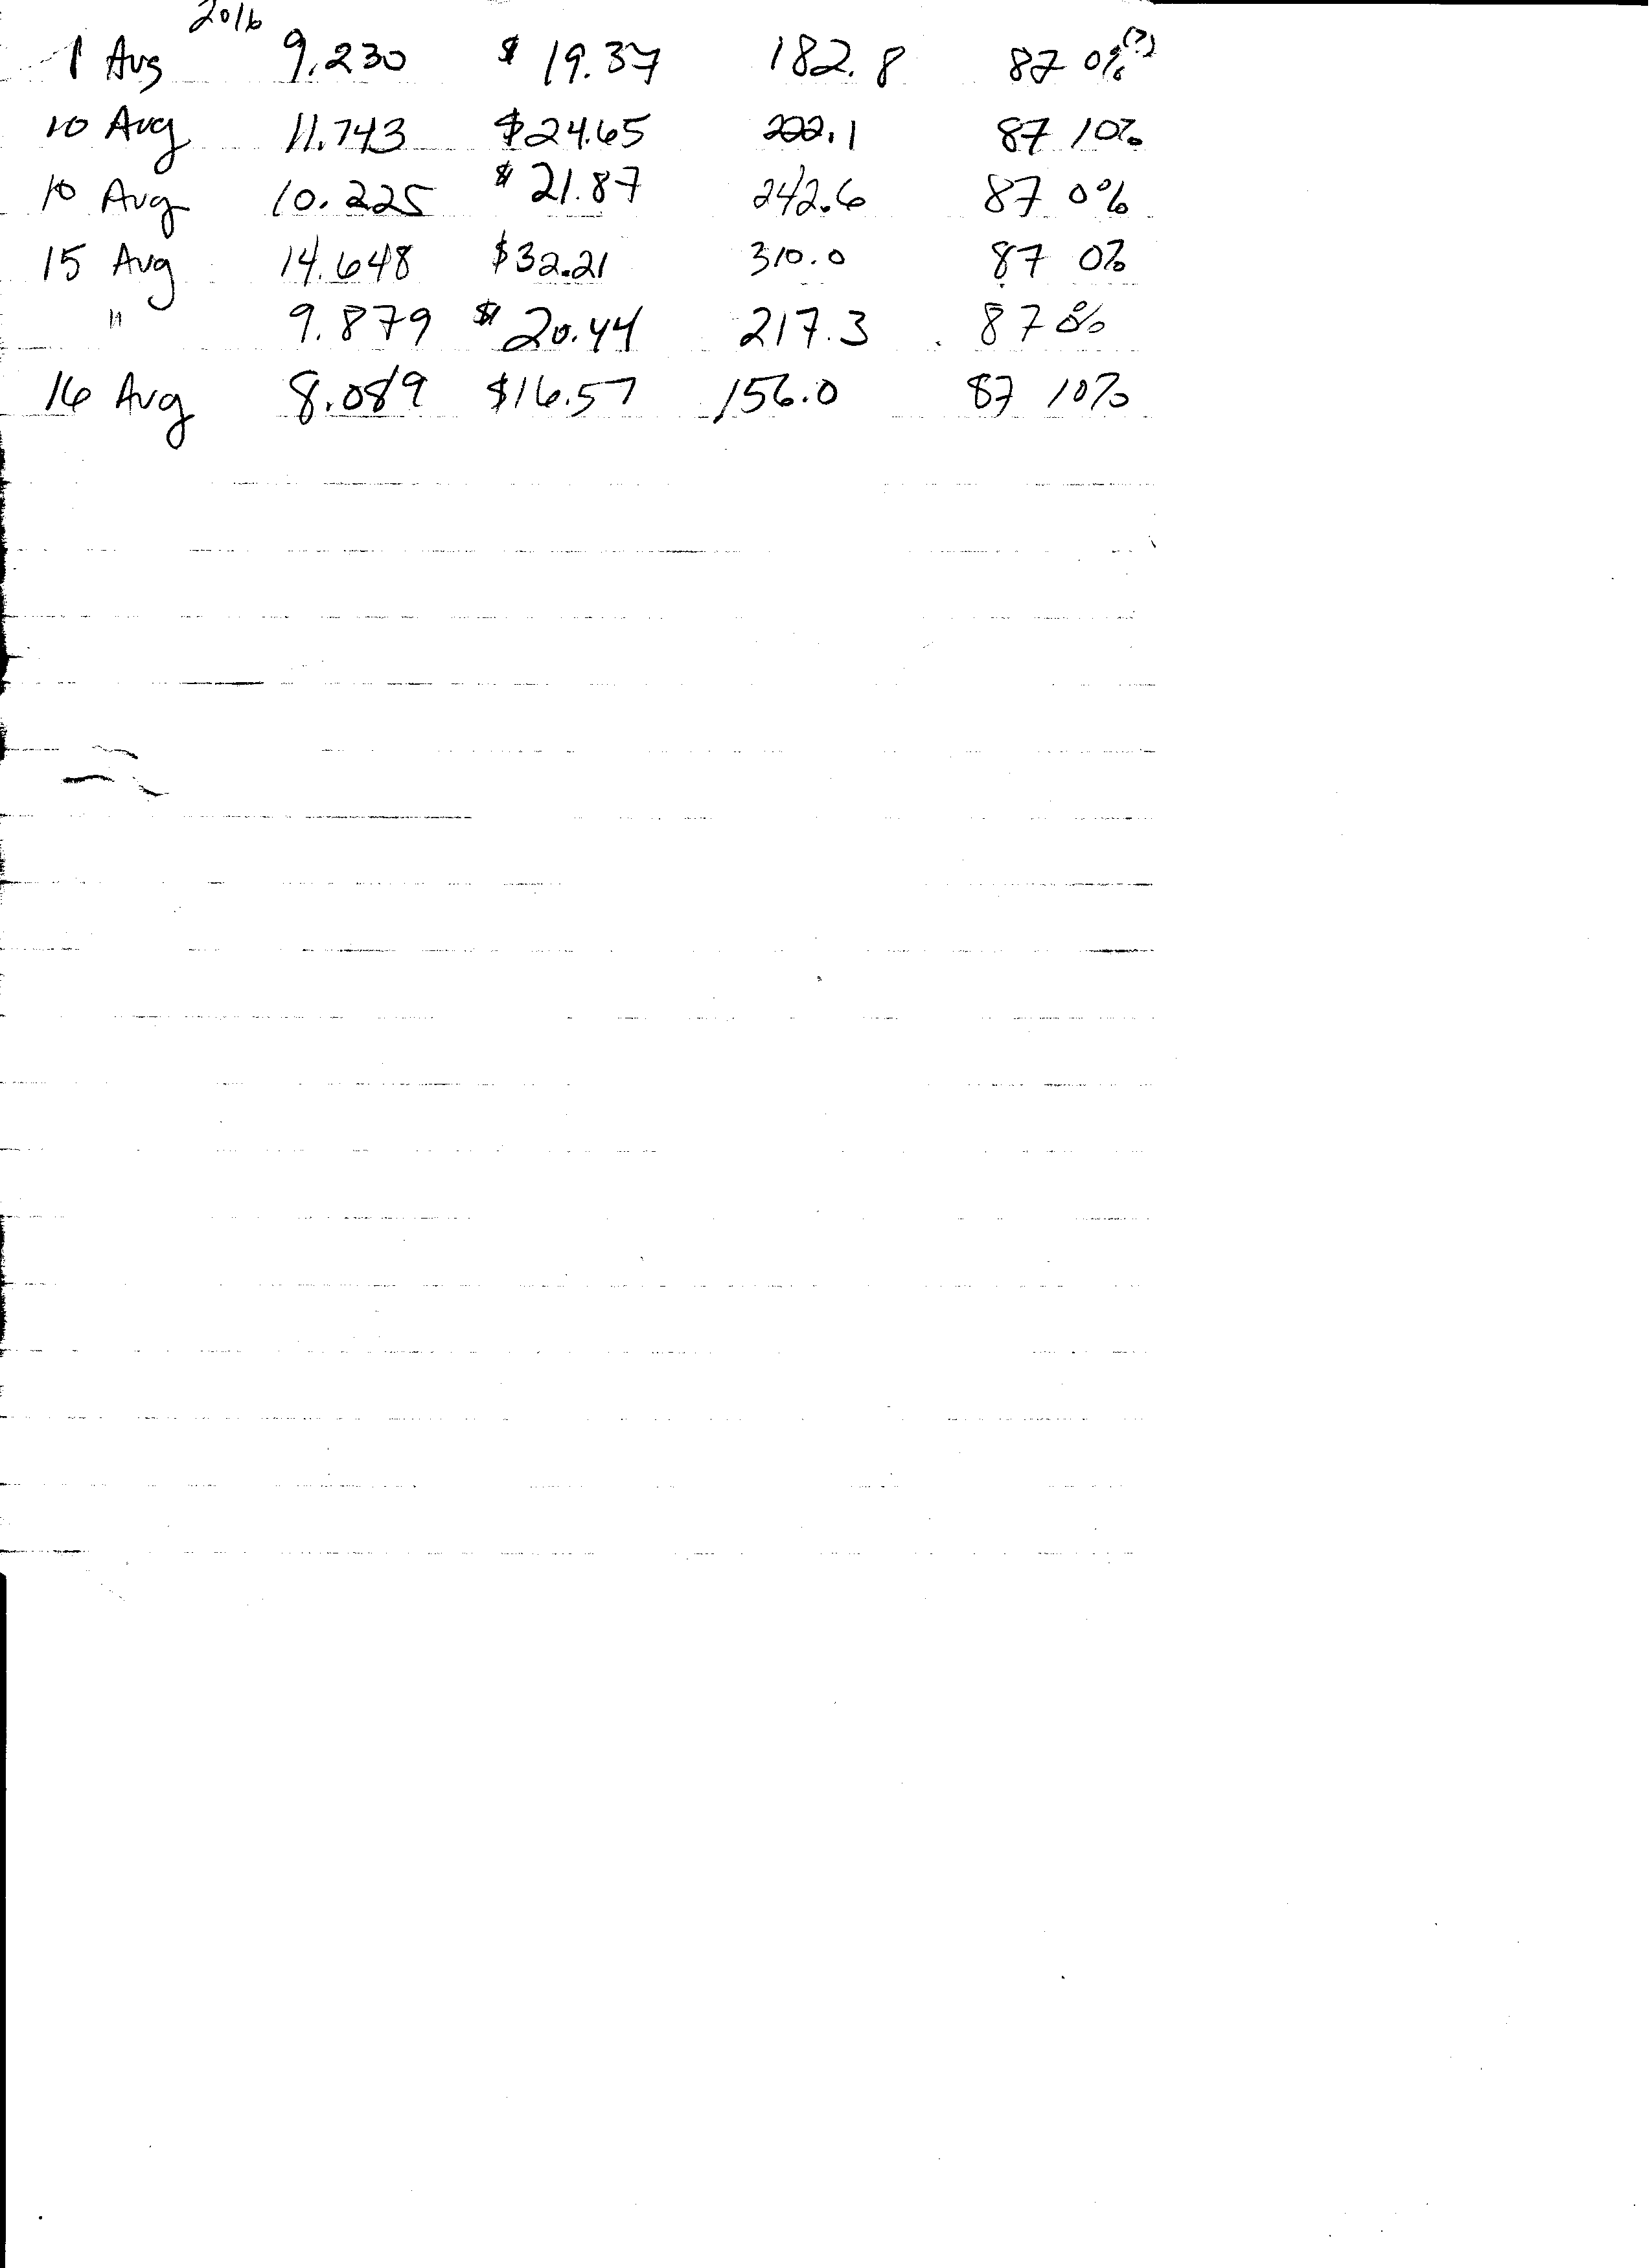 2016
1 Aug 9.230 $ 19.37 182.8 87 0% (?)
10 Aug 11.743 $24.65 222.1 87 10%
10 Aug 10.225 $ 21.87 242.6 87 0%
15 Aug 14.648 $32.21 310.0 87 0%
" 9.879 $ 20.44 217.3 87 0%
16 Aug 8.089 $16.57 156.0 87 10%